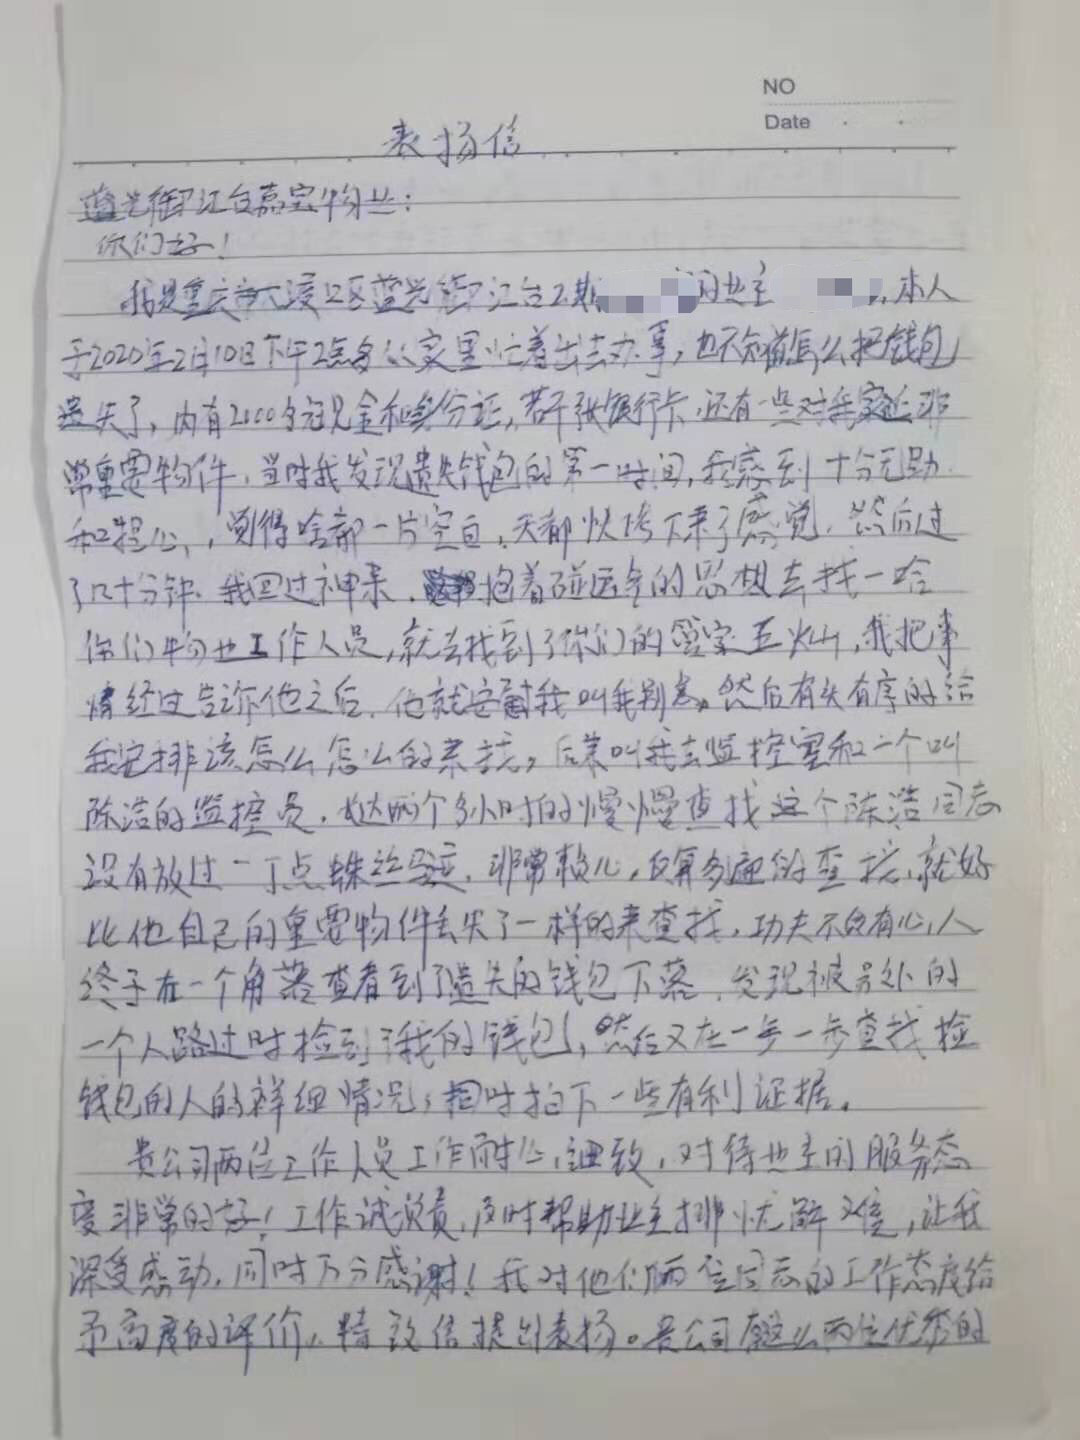 NO
Date
表扬信
蓝光御江台嘉宝物业:
你们好!
我是重庆市大渡口区蓝光御江台2期 的业主 , 本人
于2020年2月10日下午2点多从家里忙着出去办事,也不知道怎么把钱包
遗失了,内有2000多元现金和身份证,若干张银行卡,还有一些对我家近非
常重要物件,当时我发现遗失钱包的第一时间,我感到十分无助
和担心,觉得啥都一片空白,天都快垮下来了感觉,然后过
了几十分钟,我回过神来,抱着碰运气的思想去找一哈
你们物业工作人员,就去找到了你们的管家王灿,我把事
情经过告诉他之后,他就安慰我叫我别急,然后有头有序的给
我安排该怎么怎么的来找,后来叫我去监控室和一个叫
陈浩的监控员,长达两个多小时的慢慢查找这个陈浩同志
没有放过一丁点蛛丝马迹,非常耐心,反复多遍的查找,就好
比他自己的重要物件丢失了一样的来查找,功夫不负有心人
终于在一个角落查看到了遗失的钱包下落,发现被另外的
一个人路过时捡到了我的钱包,然后又在一步一步查找捡
钱包的人的祥细情况,相时拍下一些有利证据。
贵公司两位工作人员工作耐心,细致,对待业主的服务态
度非常的好!工作诚负责,及时帮助业主排忧解难,让我
深受感动,同时万分感谢!我对他们两位同志的工作态度给
予高度的评价,特致信提出表扬。贵公司有这么两位优秀的